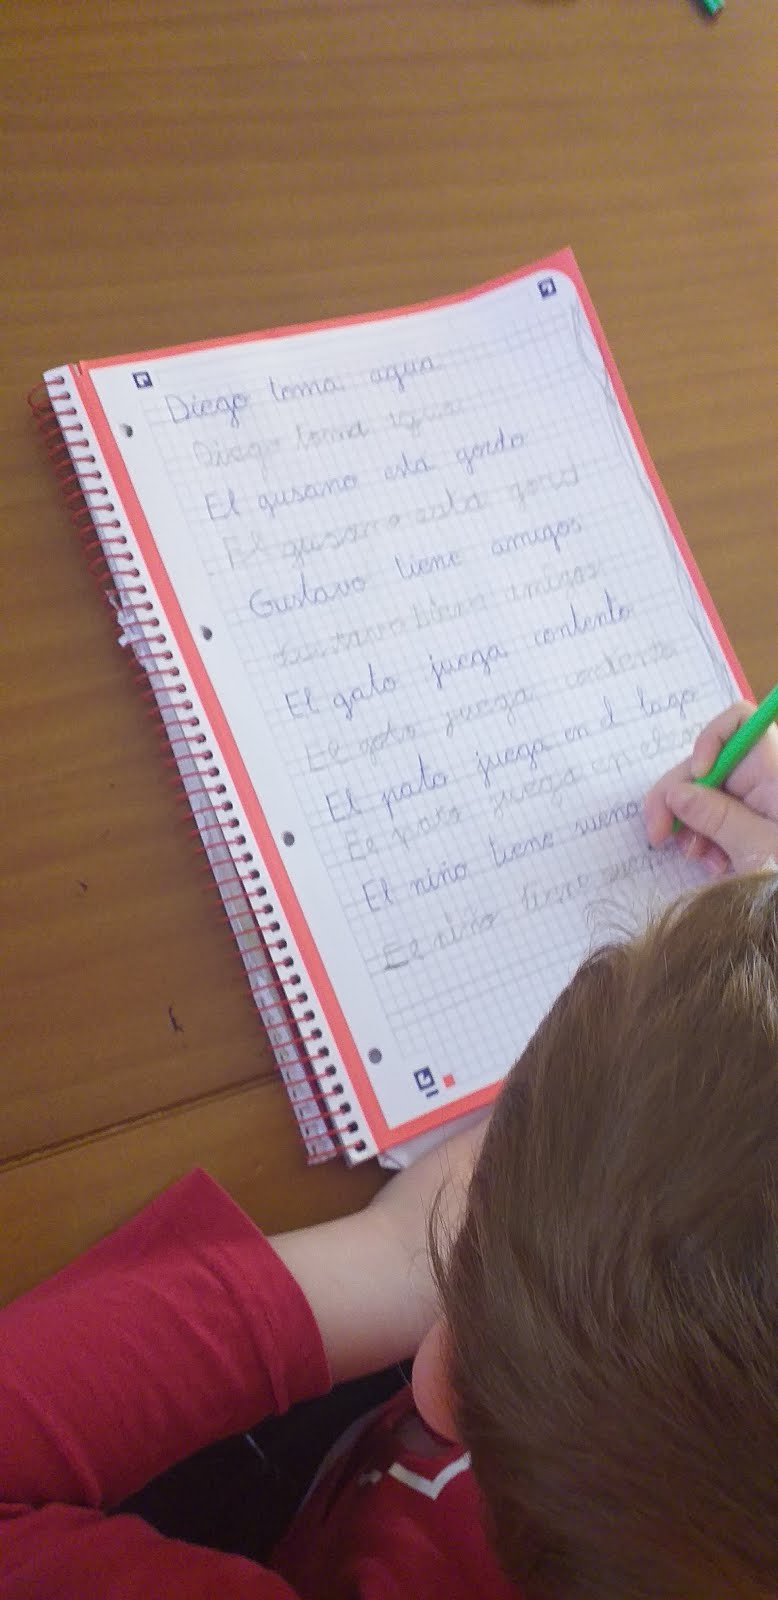 Diego toma agua
Diego toma agua
El gusano está gordo
El gusano está gord
Gustavo tiene amigos
Gustavo tiene amigos
El gato juega contento
El gato juega contento
El pato juega en el lago
El pato juega en el
El niño tiene sueño
El niño tiene